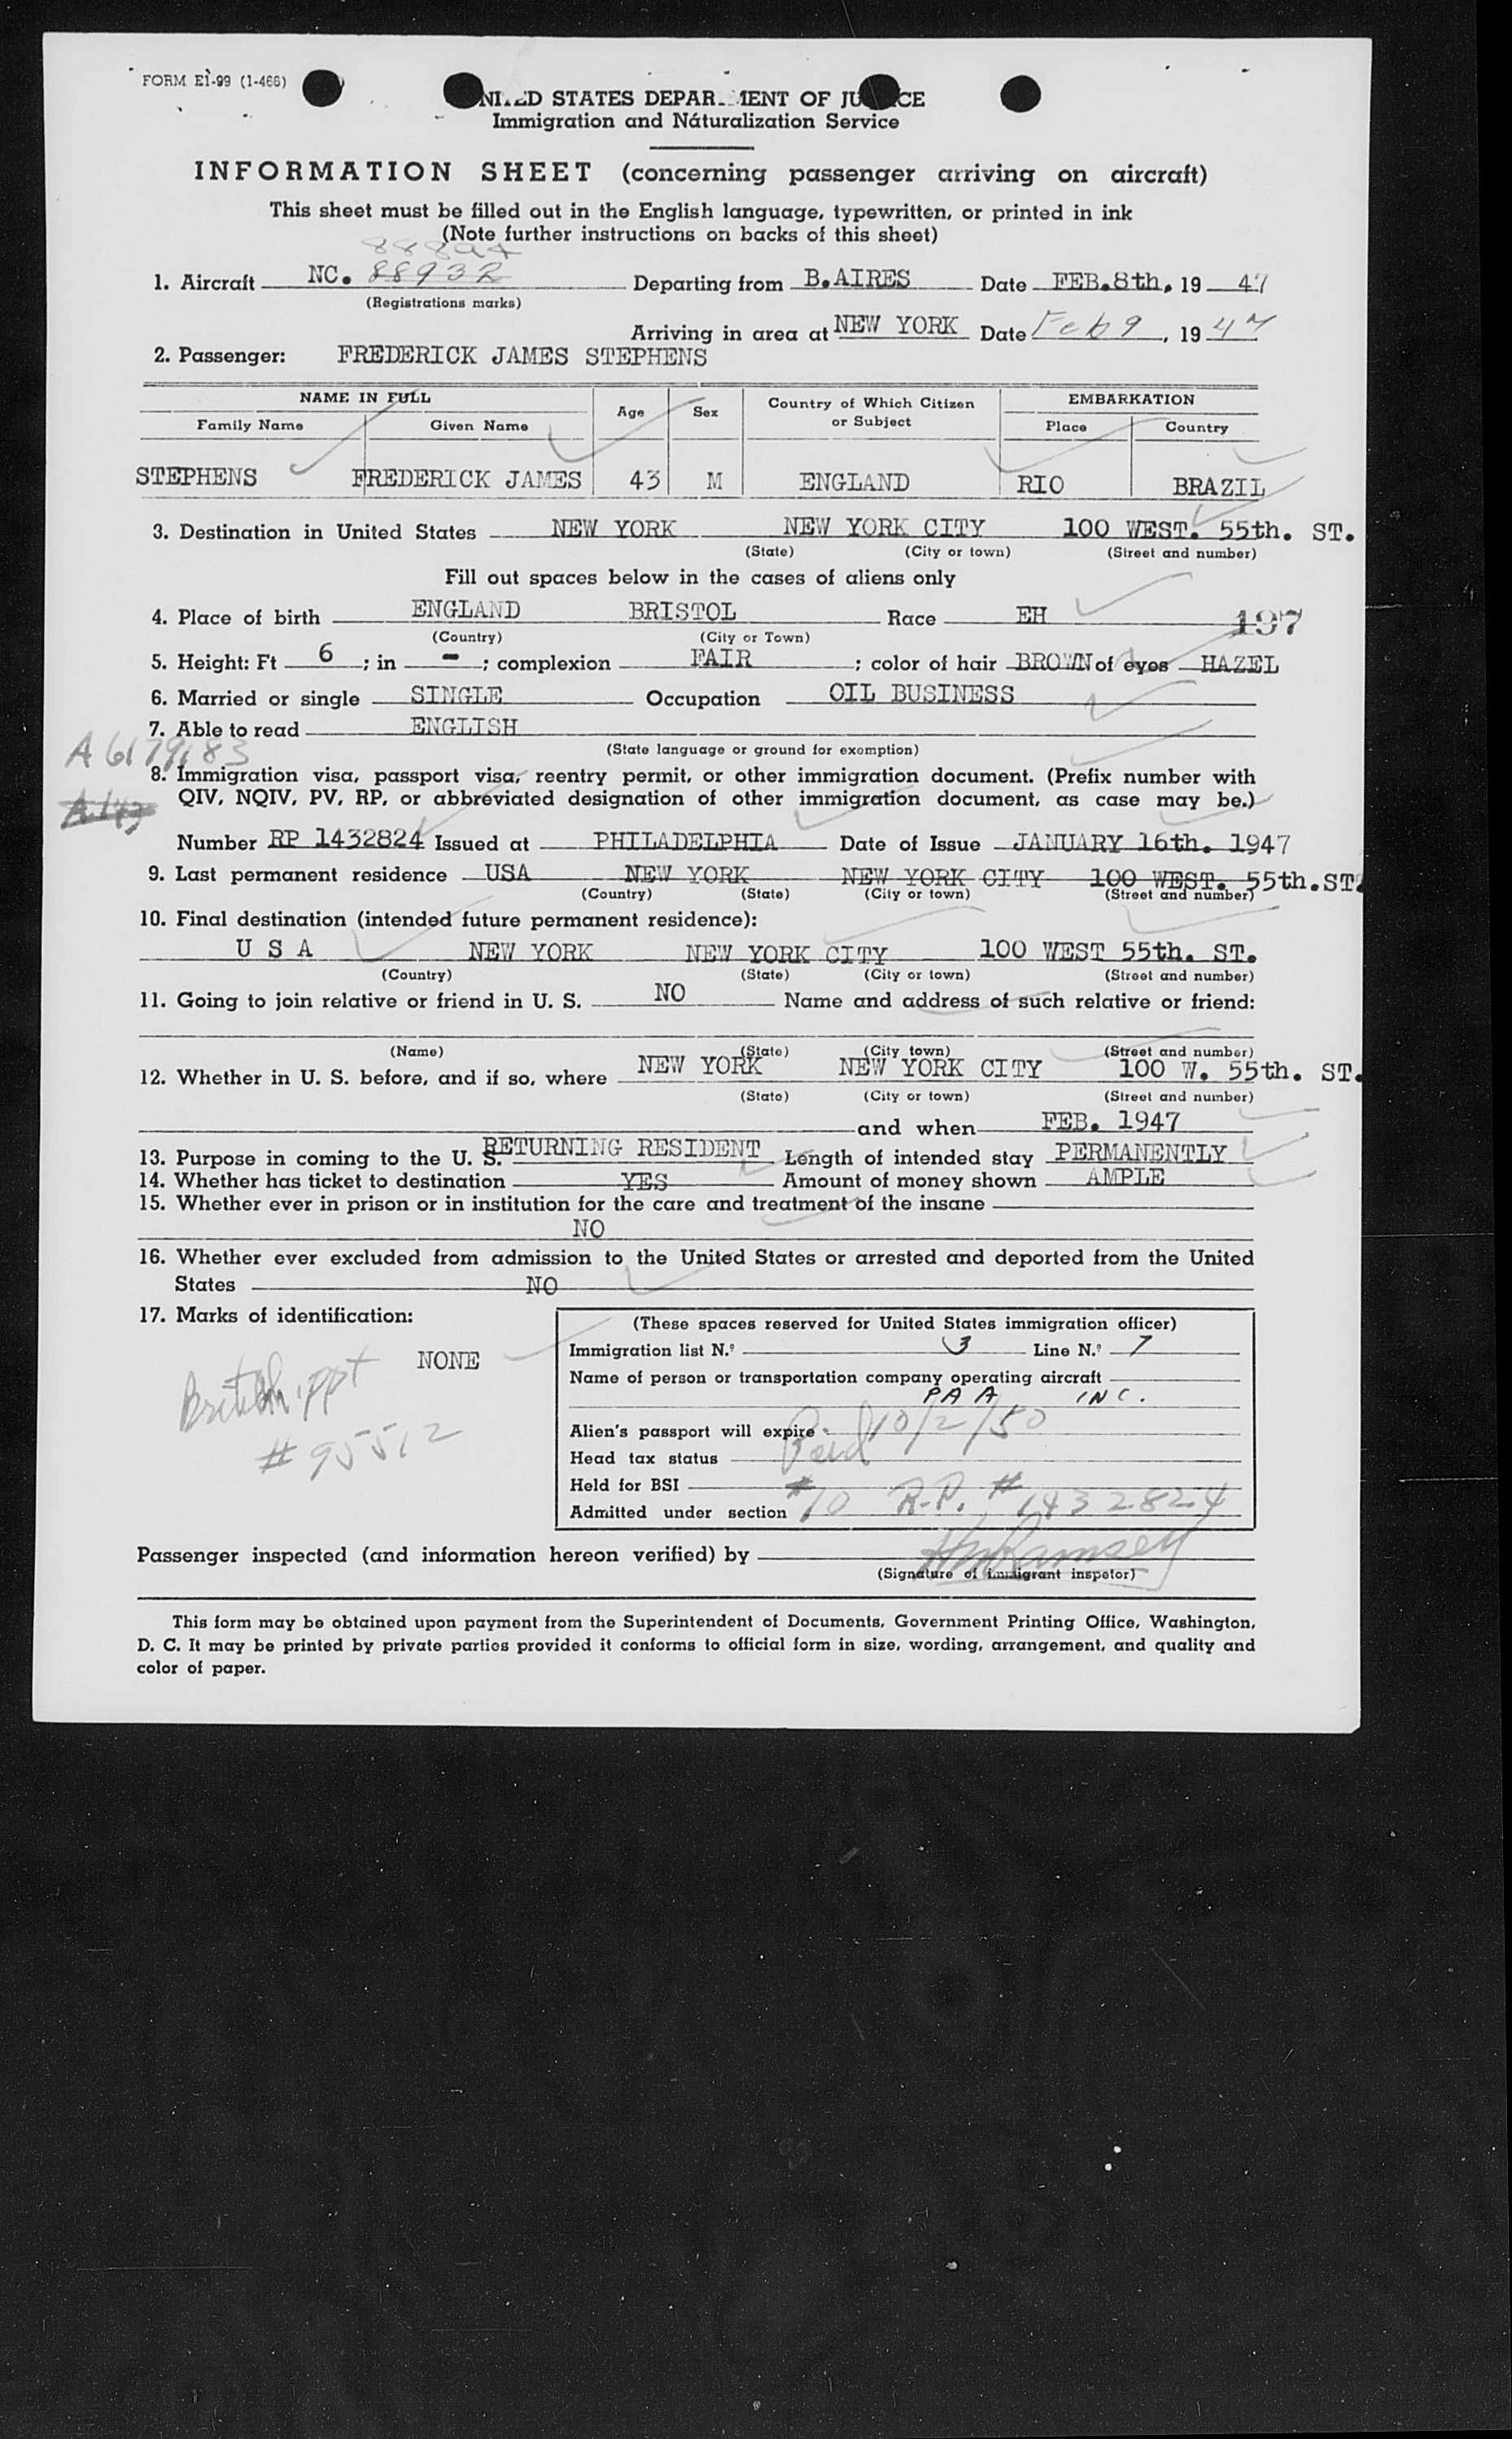 FORM E1-99 (1-466)
STATES OF
Immigration and Náturalization Service
INFORMATION SHEET (concerning passenger arriving on aircraft)
This sheet must be filled out in the English language, typewritten, or printed in ink
(Note further instructions on backs of this sheet)
1. Aircraft NC. 88932 Departing from B.AIRES Date FEB.8th, 19 47
(Registrations marks)
Arriving in area at NEW YORK Date Feb 9, 19 47
2. Passenger: FREDERICK JAMES STEPHENS
NAME IN FULL Age Sex Country of Which Citizen or Subject EMBARKATION
Family Name Given Name Place Country
STEPHENS FREDERICK JAMES 43 M ENGLAND RIO BRAZIL
3. Destination in United States NEW YORK NEW YORK CITY 100 WEST. 55th. ST.
(State) (City or town) (Street and number)
Fill out spaces below in the cases of aliens only
4. Place of birth ENGLAND BRISTOL Race EH 197
(Country) (City or Town)
5. Height: Ft 6 ; in - ; complexion FAIR ; color of hair BROWN of eyes HAZEL
6. Married or single SINGLE Occupation OIL BUSINESS
7. Able to read ENGLISH
(State language or ground for exemption)
A6179183
8. Immigration visa, passport visa, reentry permit, or other immigration document. (Prefix number with
QIV, NQIV, PV, RP, or abbreviated designation of other immigration document, as case may be.)
Number RP 1432824 Issued at PHILADELPHIA Date of Issue JANUARY 16th. 1947
9. Last permanent residence USA NEW YORK NEW YORK CITY 100 WEST. 55th.ST.
(Country) (State) (City or town) (Street and number)
10. Final destination (intended future permanent residence):
U S A NEW YORK NEW YORK CITY 100 WEST 55th. ST.
(Country) (State) (City or town) (Street and number)
11. Going to join relative or friend in U. S. NO Name and address of such relative or friend:
(Name) (State) (City town) (Street and number)
12. Whether in U. S. before, and if so, where NEW YORK NEW YORK CITY 100 W. 55th. ST.
(State) (City or town) (Street and number)
and when FEB. 1947
13. Purpose in coming to the U. S. RETURNING RESIDENT Length of intended stay PERMANENTLY
14. Whether has ticket to destination YES Amount of money shown AMPLE
15. Whether ever in prison or in institution for the care and treatment of the insane
NO
16. Whether ever excluded from admission to the United States or arrested and deported from the United
States NO
17. Marks of identification:
NONE
British ppt
# 95512
(These spaces reserved for United States immigration officer)
Immigration list N.º 3 Line N.º 7
Name of person or transportation company operating aircraft
PAA INC.
Alien's passport will expire 10/2/50
Head tax status Paid
Held for BSI
Admitted under section #10 R.P. # 1432824
Passenger inspected (and information hereon verified) by HM Ramsey
(Signature of immigrant inspetor)
This form may be obtained upon payment from the Superintendent of Documents, Government Printing Office, Washington,
D. C. It may be printed by private parties provided it conforms to official form in size, wording, arrangement, and quality and
color of paper.